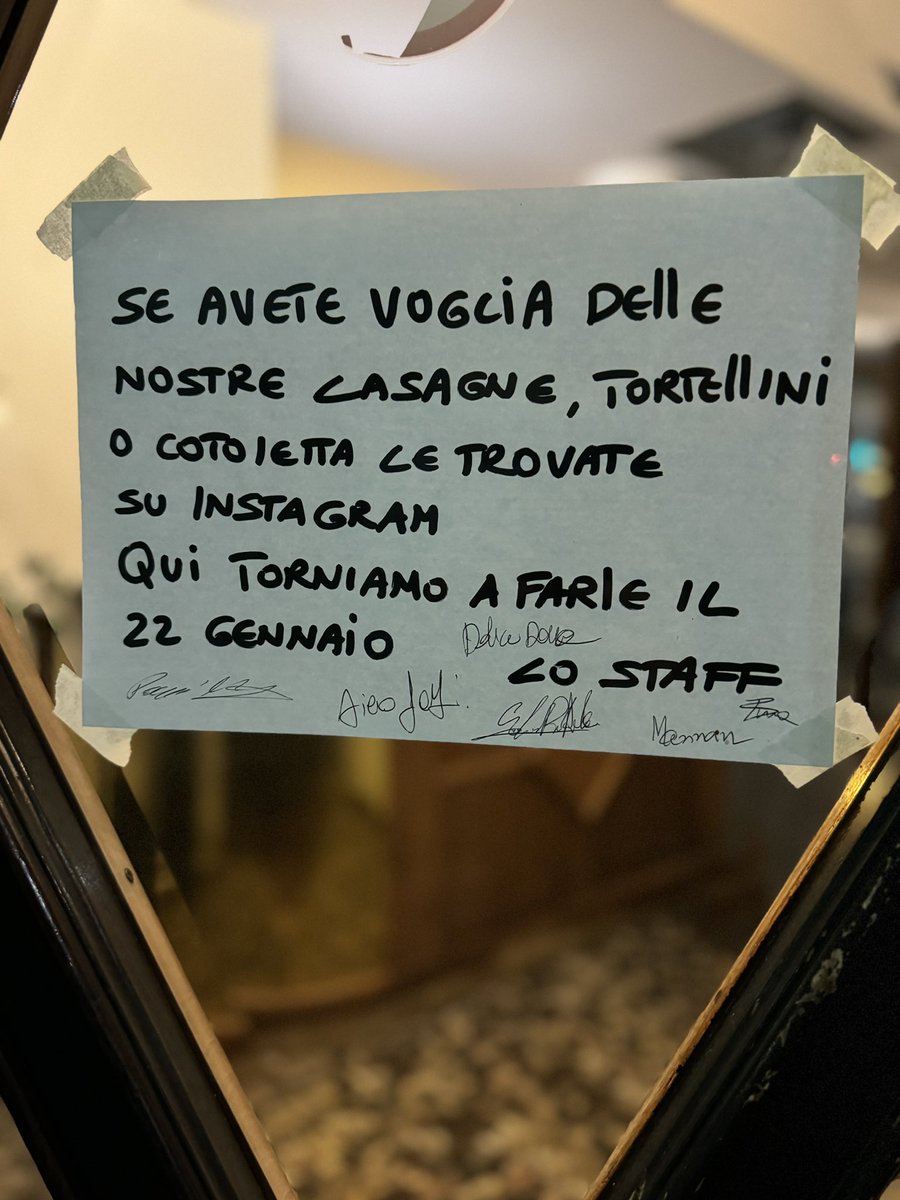 SE AVETE VOGLIA DELLE
NOSTRE LASAGNE, TORTELLINI
O COTOLETTA LE TROVATE
SU INSTAGRAM
QUI TORNIAMO A FARLE IL
22 GENNAIO
LO STAFF